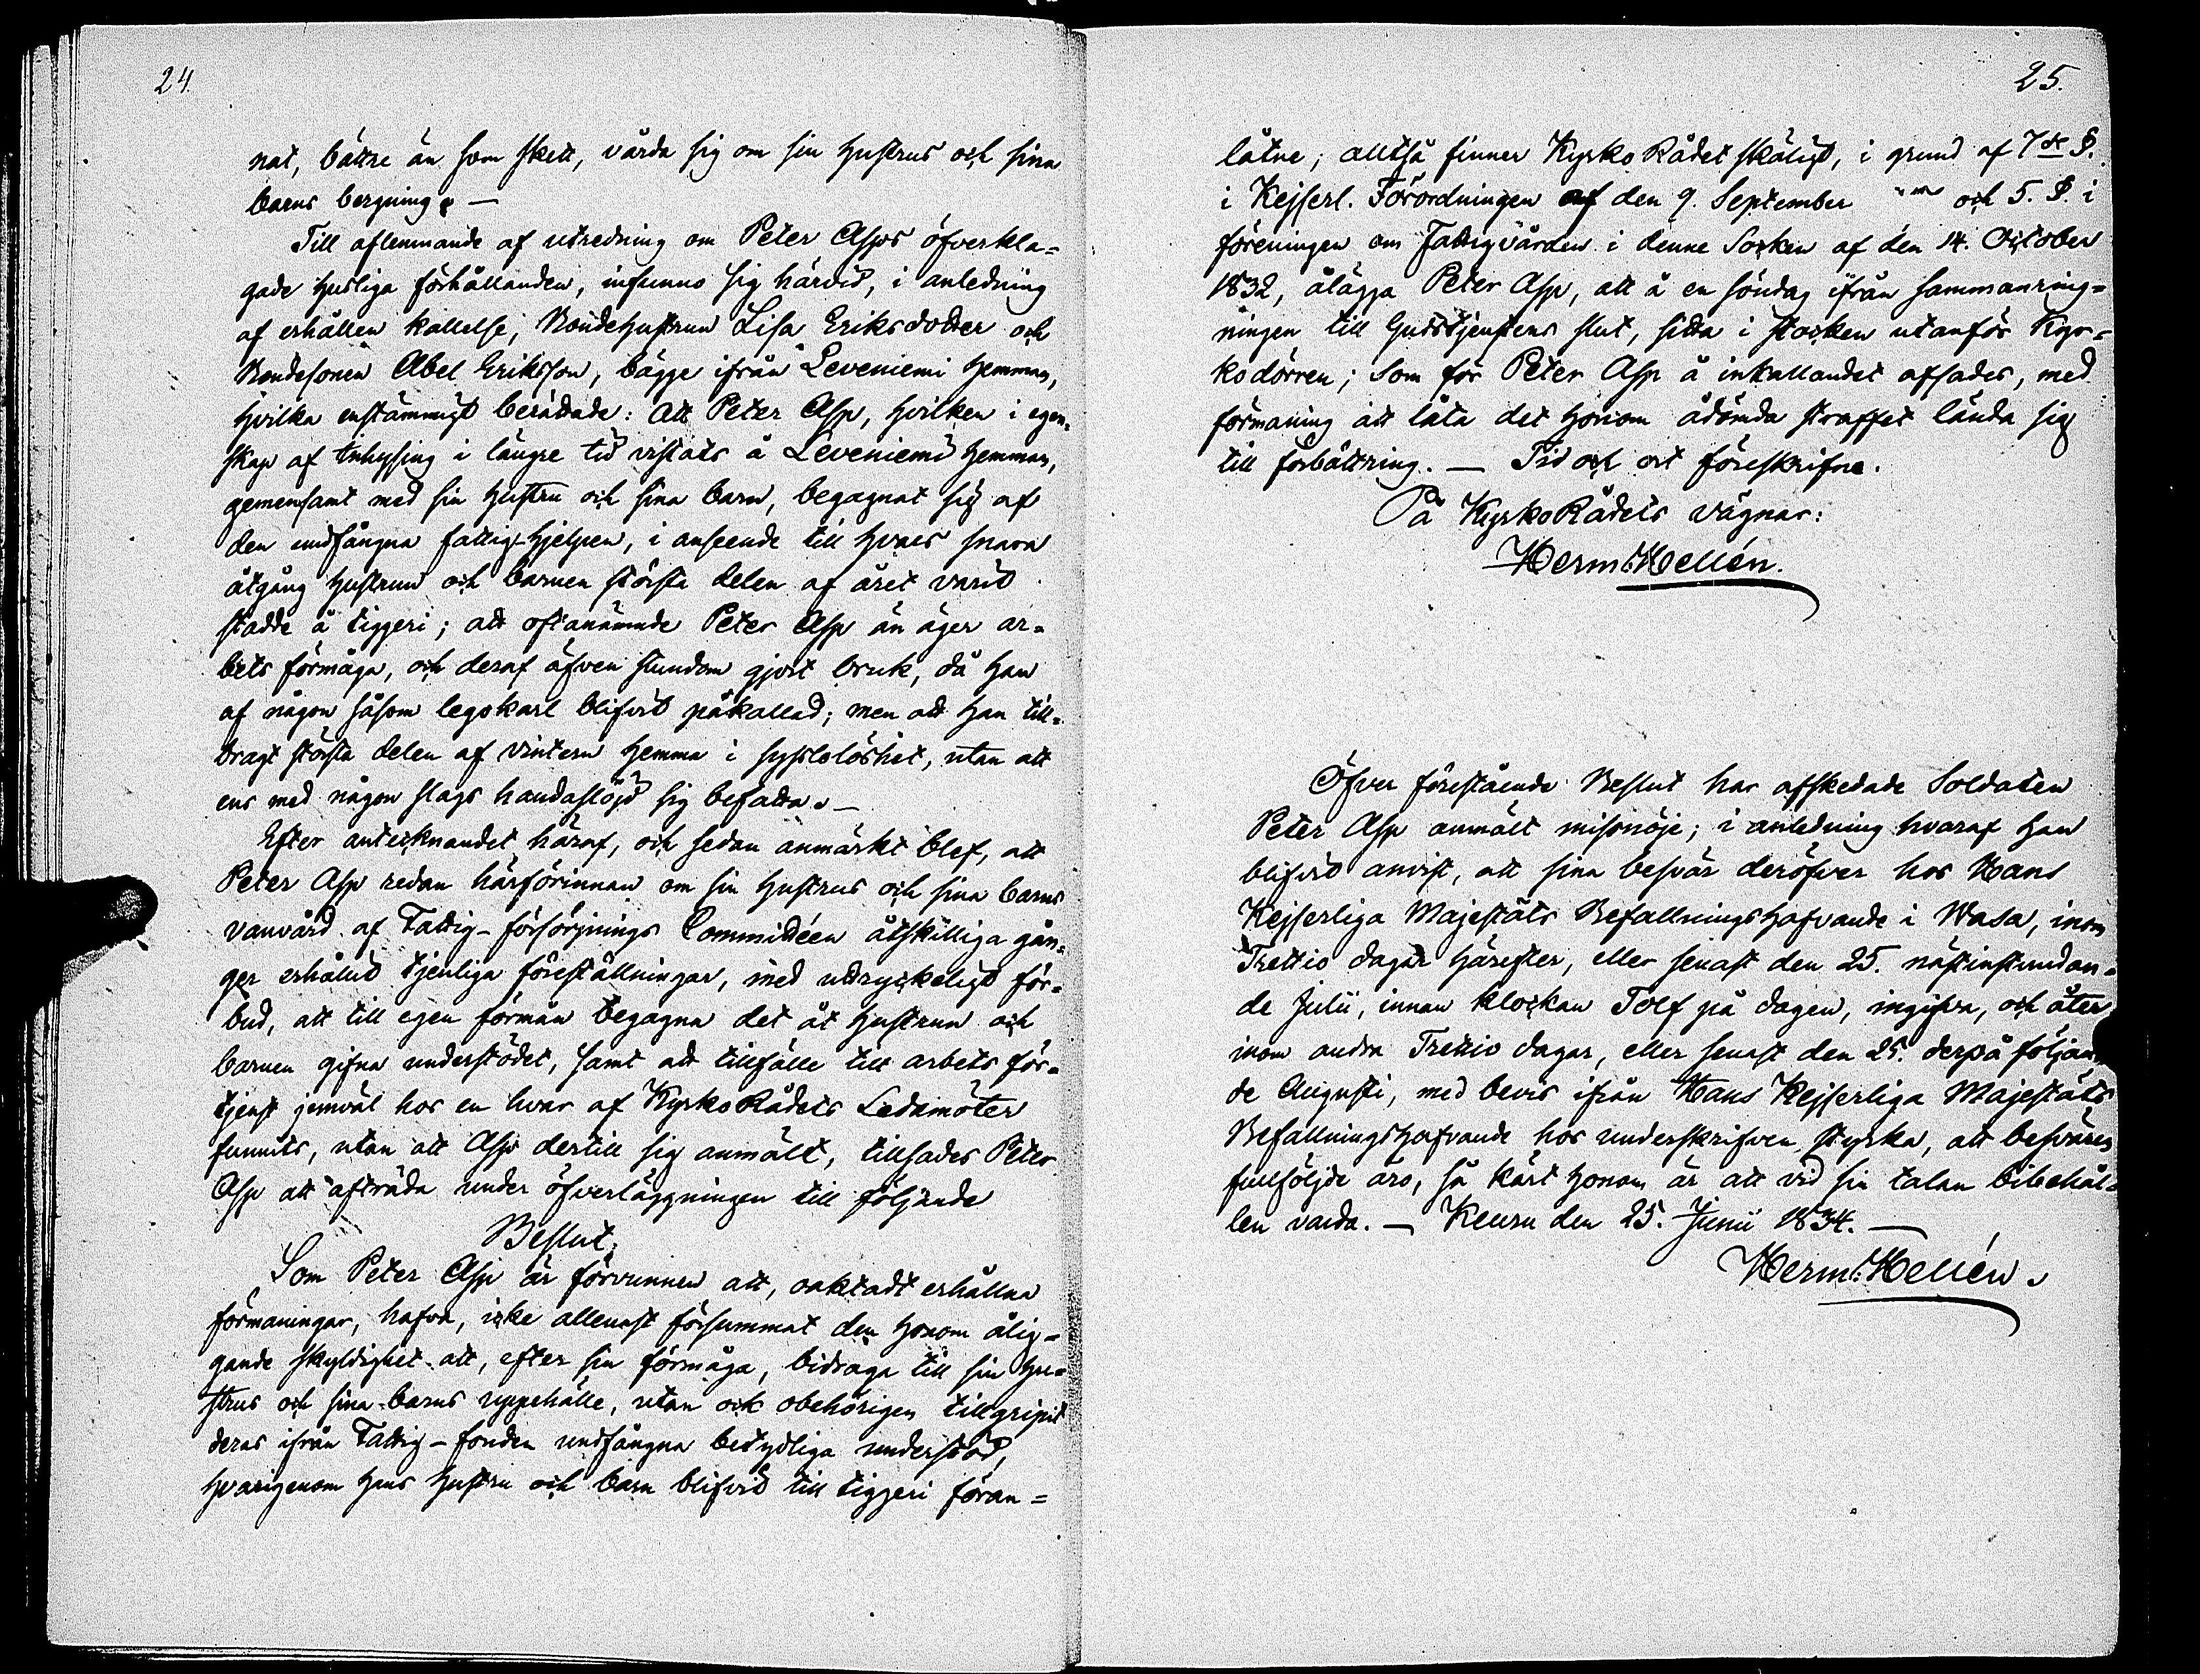 24.
nat, bättre än som skett, vårda sig om sin hustrus och sina
barns bergning. —
Till aflemnande af utredning om Peter Asps öfverkla=
gade husliga förhållanden, infunno sig härvid, i anledning
af erhållen kallelse, Bondehustrun Lisa Eriksdotter och
Bondesonen Abel Eriksson, bägge ifrån Leveniemi hemman,
hvilka enstämmigt berättade: Att Peter Asp, hvilken i egen=
skap af Inhysing i längre tid vistats å Leveniemi hemman,
gemensamt med sin hustru och sina barn, begagnat sig af
den undfångna fattig-hjelpen, i anseende till hvars snara
åtgång hustrun och barnen största delen af året varit
stadde å tiggeri; att oftanämnde Peter Asp än äger ar=
bets förmåga, och deraf äfven stundom gjort bruk, då han
af någon såsom legokarl blifvit påkallad; men att han till=
bragt största delen af vintern hemma i sysslolöshet, utan att
ens med någon slags handaslöjd sig befatta. —
Efter antecknandet häraf, och sedan anmärkt blef, att
Peter Asp redan härförinnan om sin hustrus och sina barns
vanvård af Fattig-försörjnings Committéen åtskilliga gån=
ger erhållit tjenliga föreställningar, med uttryckeligt för=
bud, att till egen förmån begagna det åt hustrun och
barnen gifna understödet, samt att tillfälle till arbets för=
tjenst jemväl hos en hvar af KyrkoRådets Ledamöter
funnits, utan att Asp dertill sig anmält, tillsades Peter
Asp att afträda under öfverläggningen till följande
Beslut:
Som Peter Asp är förvunnen att, oaktadt erhållna
förmaningar, hafva, icke allenast försummat den honom ålig=
gande skyldighet att, efter sin förmåga, bidraga till sin hu=
strus och sina barns uppehälle, utan ock obehörigen tillgripit
deras ifrån Fattig-fonden undfångna betydliga understöd,
hvarigenom hans hustru och barn blifvit till tiggeri föran=
25.
låtne; alltså finner Kyrko Rådet skäligt, i grund af 7de §.
i Kejserl. Förordningen af den 9. September och 5. §. i
föreningen om Fattigvården i denne Socken af den 14. October
1832, ålägga Peter Asp, att å en söndag ifrån sammanring=
ningen till Gudstjenstens slut, sitta i stocken utanför Kyr=
kodörren; Som för Peter Asp å inkallandet afsades, med
förmaning att låta det honom ådömda straffet lända sig
till förbättring. — Tid och ort föreskrifne.
På KyrkoRådets vägnar:
Herm: Hellén.
Öfver förestående Beslut har afskedade Soldaten
Peter Asp anmält missnöje; i anledning hvaraf han
blifvit anvist, att sina besvär deröfver hos Hans
Kejserliga Majestäts Befallningshafvande i Wasa, inom
Trettio dagar härefter, eller senast den 25. nästinstundan=
de Julii, innan klockan Tolf på dagen, ingifva, och åter
inom andra Trettio dagar, eller senast den 25. derpå följan
de Augusti, med bevis ifrån Hans Kejserliga Majestäts
Befallningshafvande hos underskrifven styrka, att besvären
fullföljde äro, så kärt honom är att vid sin talan bibehål=
len varda. — Keuru den 25. Junii 1834. —
Herm: Hellén.